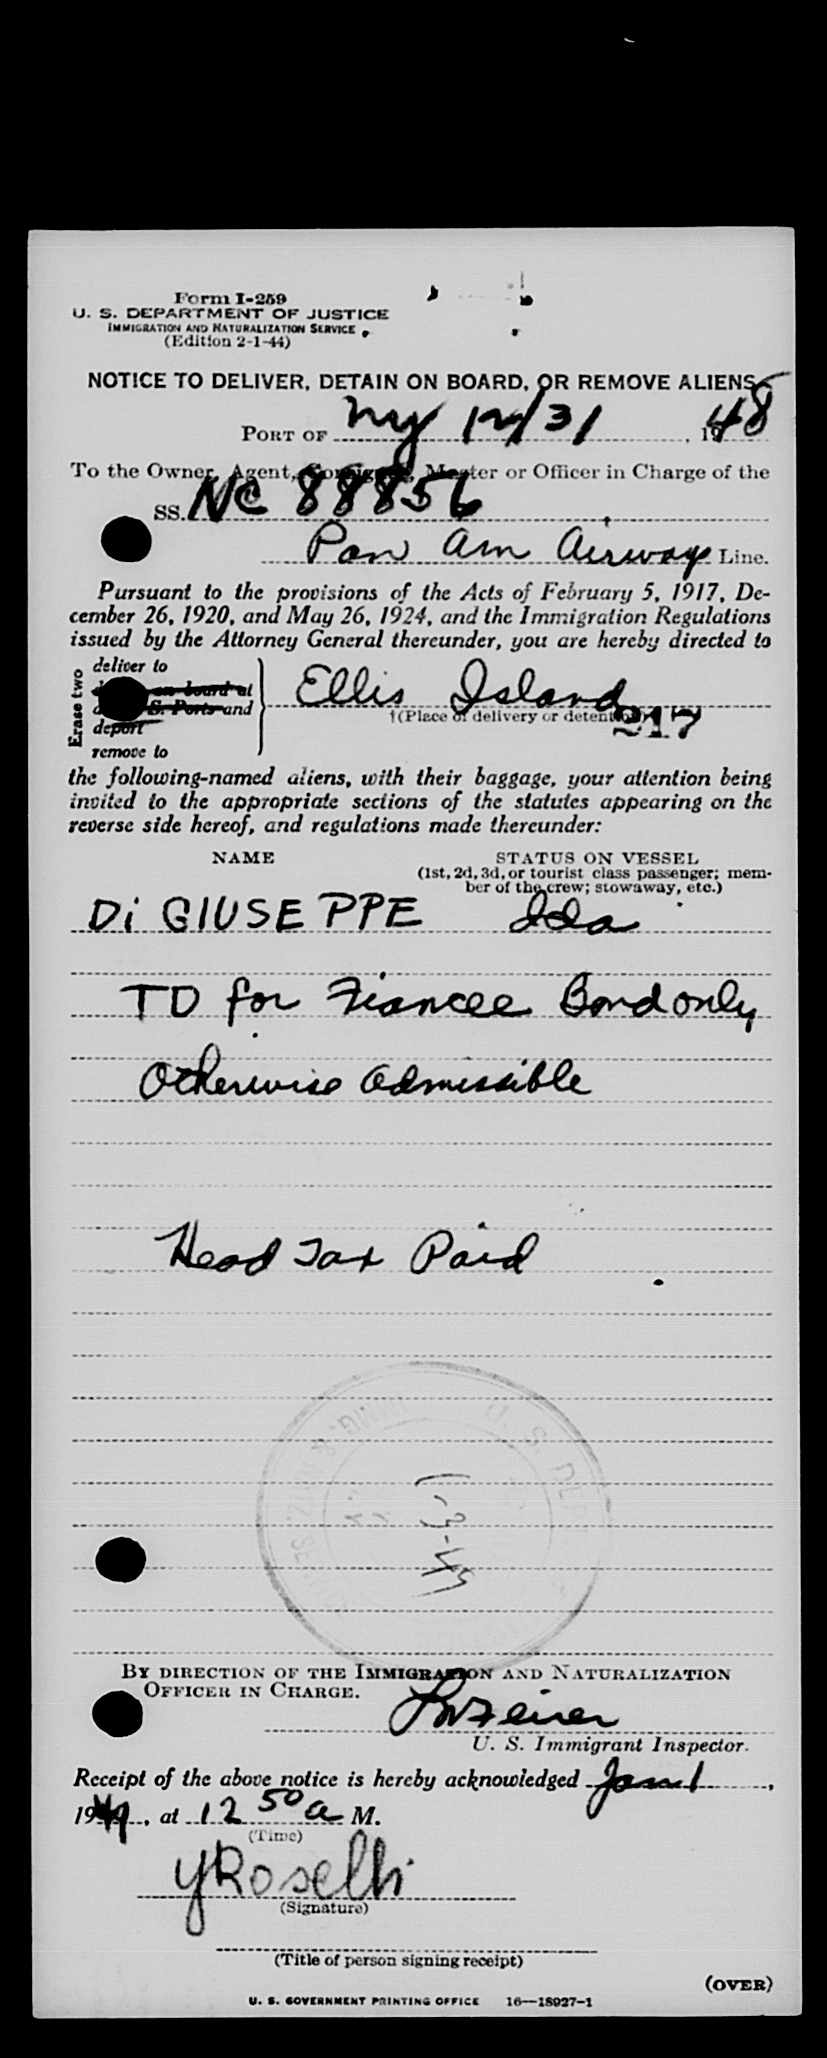 Form I-259
U. S. DEPARTMENT OF JUSTICE
IMMIGRATION AND NATURALIZATION SERVICE
(Edition 2-1-44)
NOTICE TO DELIVER, DETAIN ON BOARD, OR REMOVE ALIENS
PORT OF NY 12/31, 1948
To the Owner, Agent, Consignee, Master or Officer in Charge of the
SS. NC 88856
Pan Am Airways Line.
Pursuant to the provisions of the Acts of February 5, 1917, De-
cember 26, 1920, and May 26, 1924, and the Immigration Regulations
issued by the Attorney General thereunder, you are hereby directed to
Erase two
deliver to
on board at
S. Ports and
deport
remove to
Ellis Island
†(Place of delivery or detention)
217
the following-named aliens, with their baggage, your attention being
invited to the appropriate sections of the statutes appearing on the
reverse side hereof, and regulations made thereunder:
NAME STATUS ON VESSEL
(1st, 2d, 3d, or tourist class passenger; mem-
ber of the crew; stowaway, etc.)
Di GIUSEPPE Ida
TD for Fiancee Bond only
Otherwise Admissible
Head Tax Paid
U. S. 
1-3-49
BY DIRECTION OF THE IMMIGRATION AND NATURALIZATION
OFFICER IN CHARGE.
U. S. Immigrant Inspector.
Receipt of the above notice is hereby acknowledged Jan 1,
1949, at 12 50 a M.
(Time)
YRoselli
(Signature)
(Title of person signing receipt)
(OVER)
U. S. GOVERNMENT PRINTING OFFICE 16—18927-1